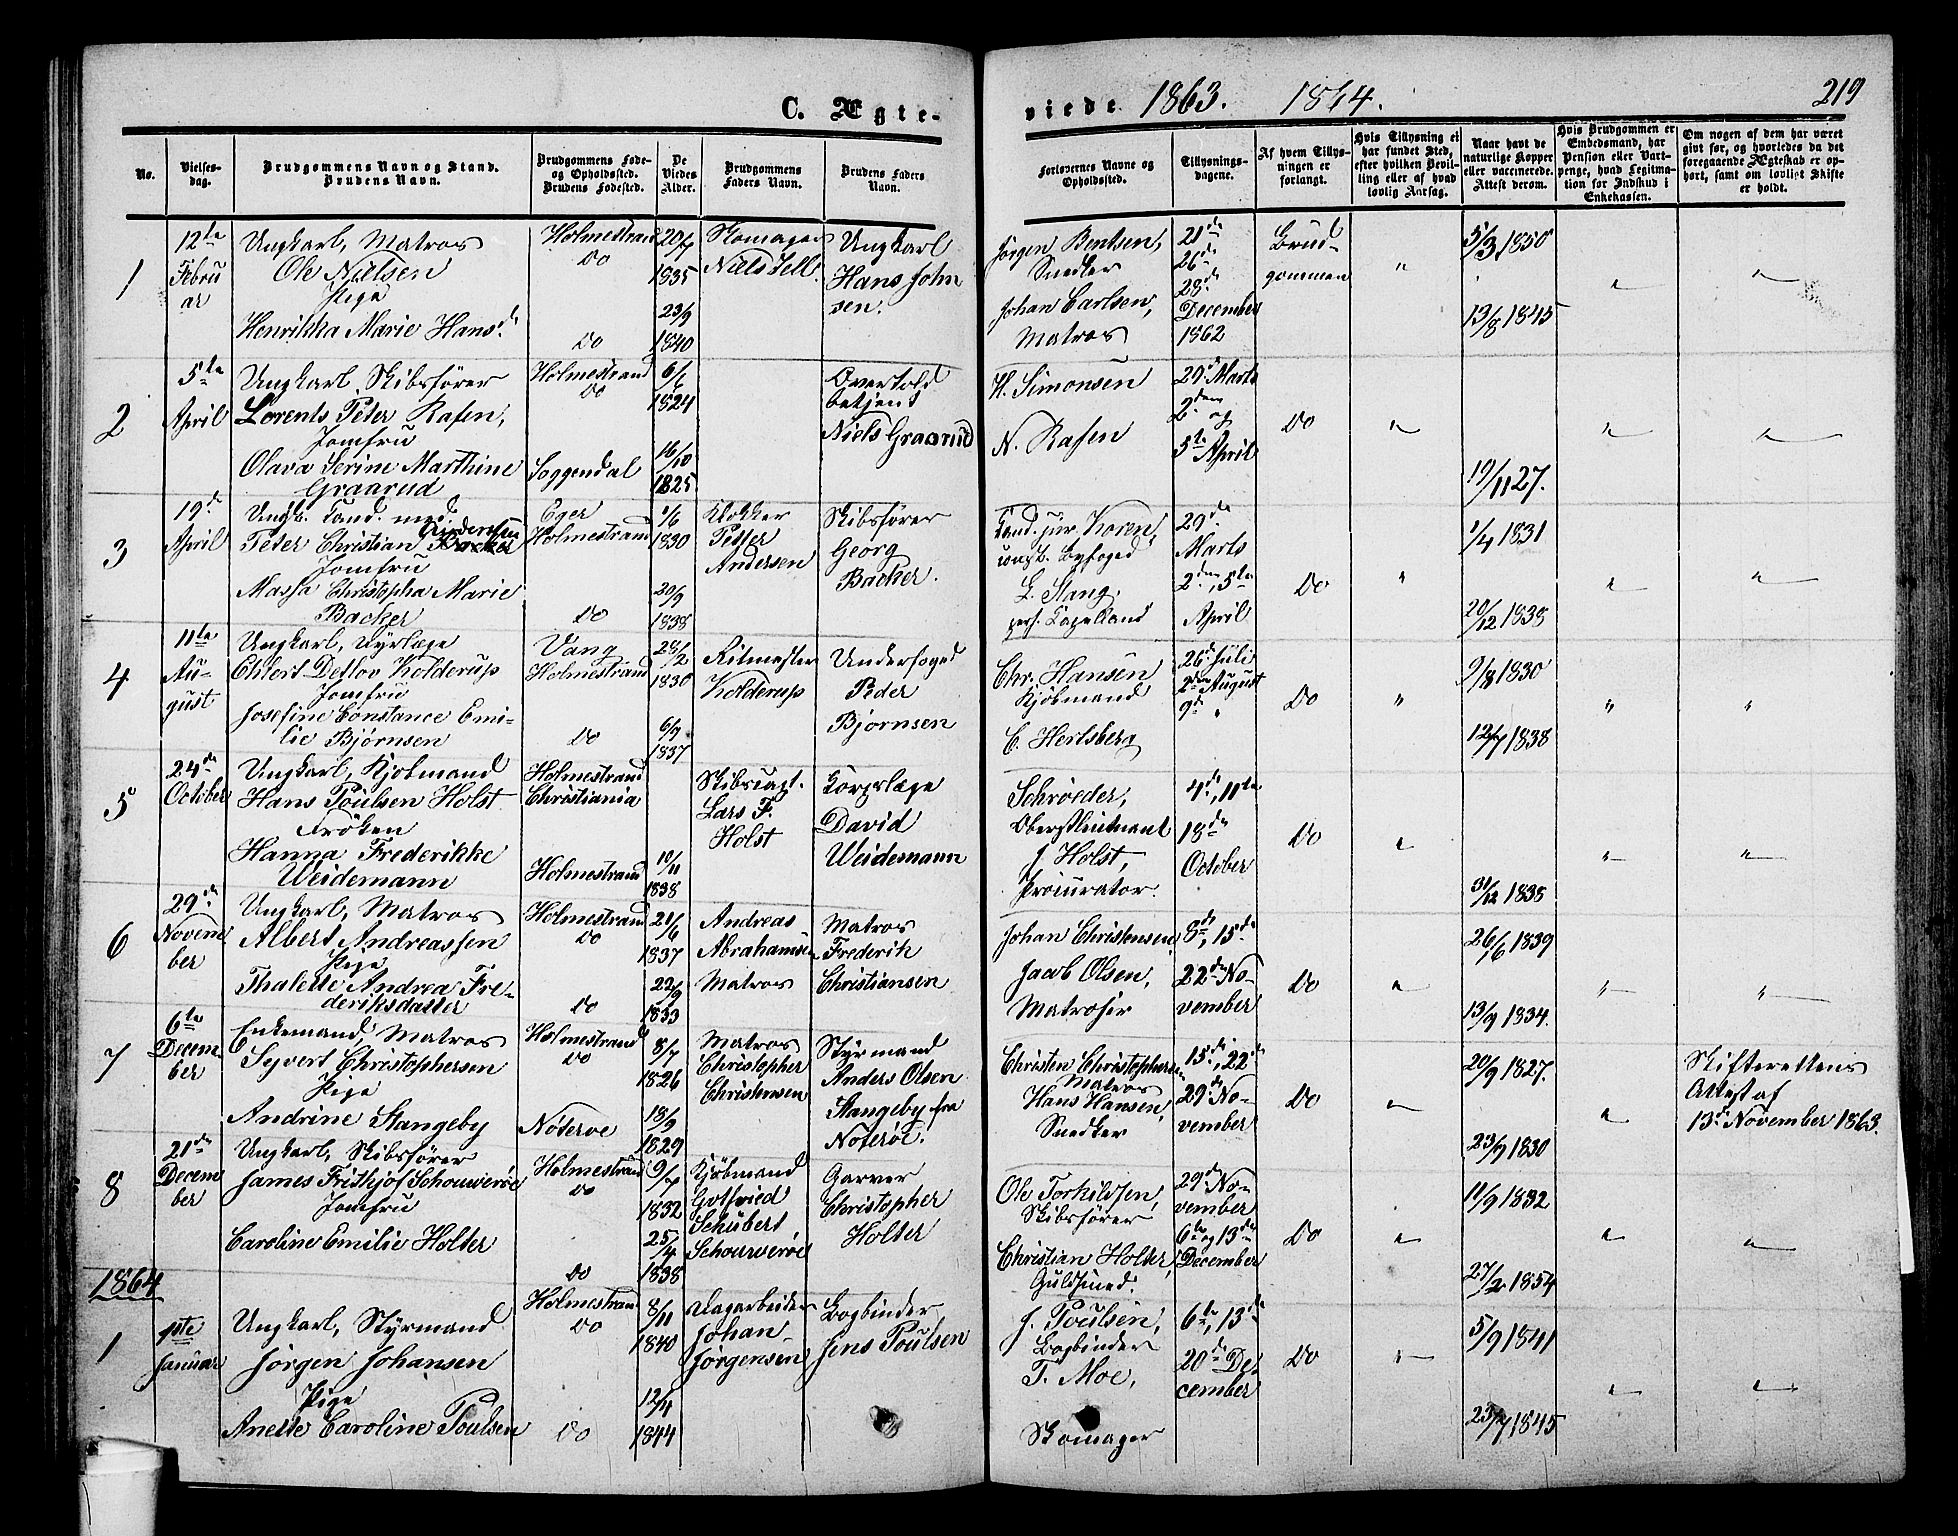 C. Ægte-
viede 1863. 1864.
219
No.
Vielses-
dag.
Brudgommens Navn og Stand.
Brudens Navn.
Brudgommens Føde-
og Opholdssted.
Brudens Fødested.
De
Viedes
Alder.
Brudgommens
Faders Navn.
Brudens Faders
Navn.
Forlovernes Navne og
Opholdssted.
Tillysnings-
dagene.
Af hvem Tillys-
ningen er
forlangt.
Hvis Tillysning ei
har fundet Sted,
efter hvilken Bevil-
ling eller af hvad
lovlig Aarsag.
Naar havt de
naturlige Kopper
eller vaccinerede.
Attest derom.
Hvis Brudgommen er
Embedsmand, har
Pension eller Vart-
penge, hvad Legitima-
tion for Indskud i
Enkekassen.
Om nogen af dem har været
gift før, og hvorledes da det
foregaaende Ægteskab er op-
hørt, samt om lovligt Skifte
er holdt.
1
12te
Febru
ar
Ungkarl, Matros
Ole Nielsen
Pige
Henrikka Marie Hansd.
Holmestrand
Do
Do
20/7
1835
23/9
1840
Skomager
Niels Jell.
Ungkarl
Hans John
sen.
Jørgen Bentsen,
Snedker
Johan Carlsen,
Matros
21de
26de
28de
December
1862
Brud-
gommen
"
5/3 1850
13/8 1845
"
"
2
5te
April
Ungkarl, Skibsfører
Lorents Peter Rasen,
Jomfru
Olava Serine Marthine
Graarud
Holmestrand
Do
Soggendal
6/6
1824
16/10
1825
Overtold
betjent
Niels Graarud
H. Simonsen
N. Rasen
29de Marts
2den og
5te April
Do
"
19/11 27.
"
"
3
19de
April
Ungk. Cand. med.
Peter Christian Andersen
Jomfru
Massa Christopha Marie
Backer
Eger
Holmestrand
Do
1/6
1830
20/9
1838
Klokker
Peter
Andersen
Skibsfører
Georg
Backer.
Cand. jur. Koren,
const. Byfoged
L. Stang,
pers. Capelland
29de
Marts
2den, 5te
April
Do
"
1/4 1831
20/12 1838
"
"
4
11te
Au-
gust
Ungkarl, Dyrlæge
Ehlert Detlov Kolderup
Jomfru
Josefine Constance Emi-
lie Bjørnsen
Vang
Holmestrand
Do
28/2
1830
6/9
1837
Ritmester
Kolderup
Underfoged
Peder
Bjørnsen
Chr. Hansen
Kjøbmand
C. Hertsberg
26de Juli
2den August
9de "
Do
"
9/8 1830
12/7 1838
"
"
5
24de
October
Ungkarl, Kjøbmand
Hans Poulsen Holst
Frøken
Hanna Frederikke
Weidemann
Holmestrand
Christiania
Holmestrand
10/11
1838
Skibscapt.
Lars F.
Holst
Corpslæge
David
Weidemann
Schrøeder,
Oberstlieutnant
J. Holst,
Procurator.
4de, 11te
18de
October
Do
"
31/12 1838
"
"
6
29de
Novem
ber
Ungkarl, Matros
Albert Andreassen
Pige
Thalette Andrea Fre-
deriksdatter
Holmestrand
Do
Do
21/6
1837
22/9
1833
Andreas
Abrahamsen
Matros
Matros
Frederik
Christiansen
Johan Christensen
Jacob Olsen,
Matroser
8de, 15de
22de No-
vember
Do
"
26/6 1839
13/9 1834.
"
"
7
6te
Decem-
ber
Enkemand, Matros
Syvert Christophersen
Pige
Andrine Stangeby
Holmestrand
Do
Nøterøe
8/7
1826
18/9
1829
Matros
Christopher
Christensen
Styrmand
Anders Olsen
Stangeby fra
Nøterøe.
Christen Christophersen
Matros
Hans Hansen,
Snedker
15de, 22de
29de No-
vember
Do
"
20/9 1827.
23/7 1830
"
Skifterettens
Attest af
13de November 1863.
8
21de
Decem
ber
Ungkarl, Skibsfører
James Fridthjof Schouwerøe
Jomfru
Caroline Emilie Holter
Holmestrand
Do
Do
9/7
1832
25/4
1838
Kjøbmand
Gotfried
Schubert
Schouwerøe
Garver
Christopher
Holter
Ole Torkildsen,
Skibsfører,
Christian Holter,
Guldsmed.
29de No-
vember
6te og 13de
December
Do
"
11/9 1832
27/2 1854
"
"
1864
1
1ste
Januar
Ungkarl, Styrmand
Jørgen Johansen
Pige
Anette Caroline Poulsen
Holmestrand
Do
Do
8/11
1840
12/4
1844
Dagarbeider
Johan
Jørgensen
Bogbinder
Jens Poulsen
J. Poulsen,
Bogbinder
T. Moe,
Skomager
6te, 13de
20de De-
cember
Do
"
5/9 1841
23/7 1845
"
"